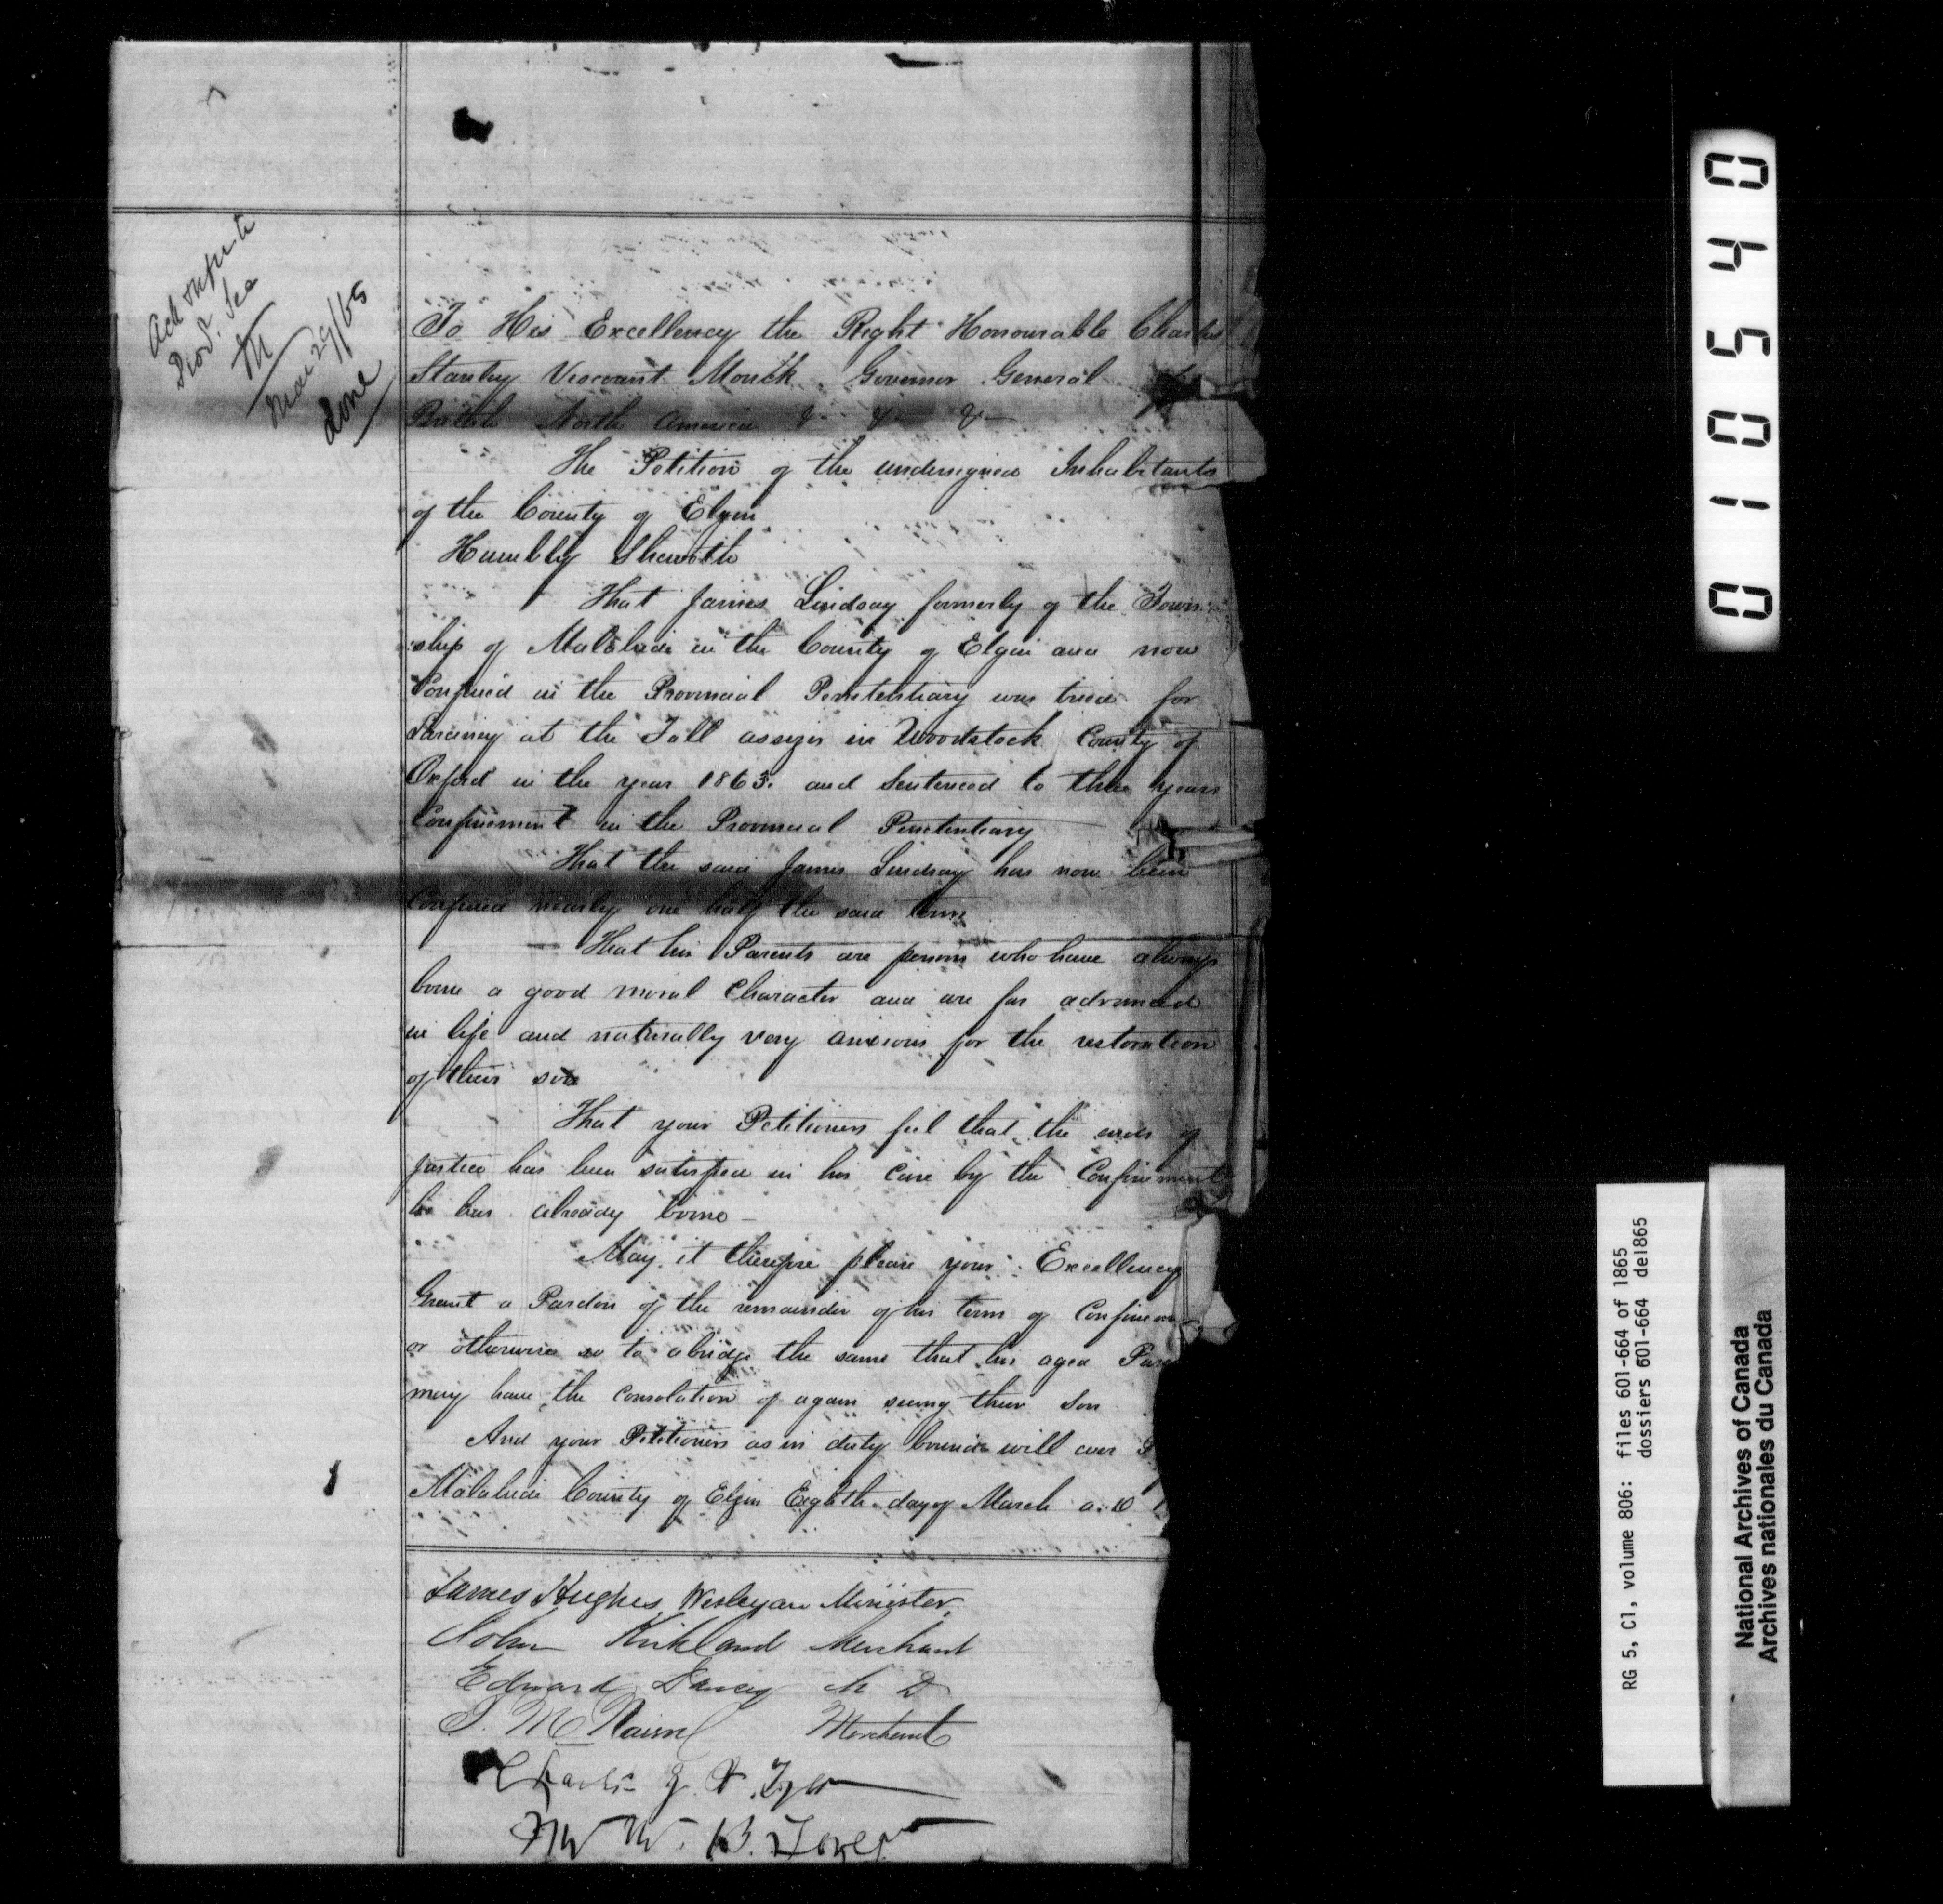 Prov. Sec
M
Mar 29/65
done
To His Excellency the Right Honourable Charles
Stanley Viscount Monck Governor General
British North America &. &. &.—
The Petition of the undersigned Inhabitants
of the County of Elgin
Humbly Sheweth
That James Lindsay formerly of the Town-
ship of Malahide in the County of Elgin and now
Confined in the Provincial Penitentiary was tried for
Larceny at the Fall assizes in Woodstock County of
Oxford in the year 1863. and Sentenced to three years
Confinement in the Provincial Penitentiary
That the said James Lindsay has now been
Confined nearly one half the said term
That his Parents are persons who have always
borne a good moral Character and are far advanced
in life and naturally very anxious for the restoration
of their son
That your Petitioners feel that the ends of
Justice has been satisfied in his case by the Confinement
he has already borne—
May it therefore please your Excellency
Grant a Pardon of the remainder of his term of Confinem
or otherwise so to abridge the same that his aged Par
may have the consolation of again seeing their Son
And your Petitioners as in duty bound will ever P
Malahide County of Elgin Eighth day of March a.D 1
James Hughes, Wesleyan Minister,
John Kirkland Merchant
Edward M D
Merchant
Charles
W. B.
0 1 0 5 4 0
RG 5, C1, volume 806: files 601-664 of 1865
dossiers 601-664 de1865
National Archives of Canada
Archives nationales du Canada